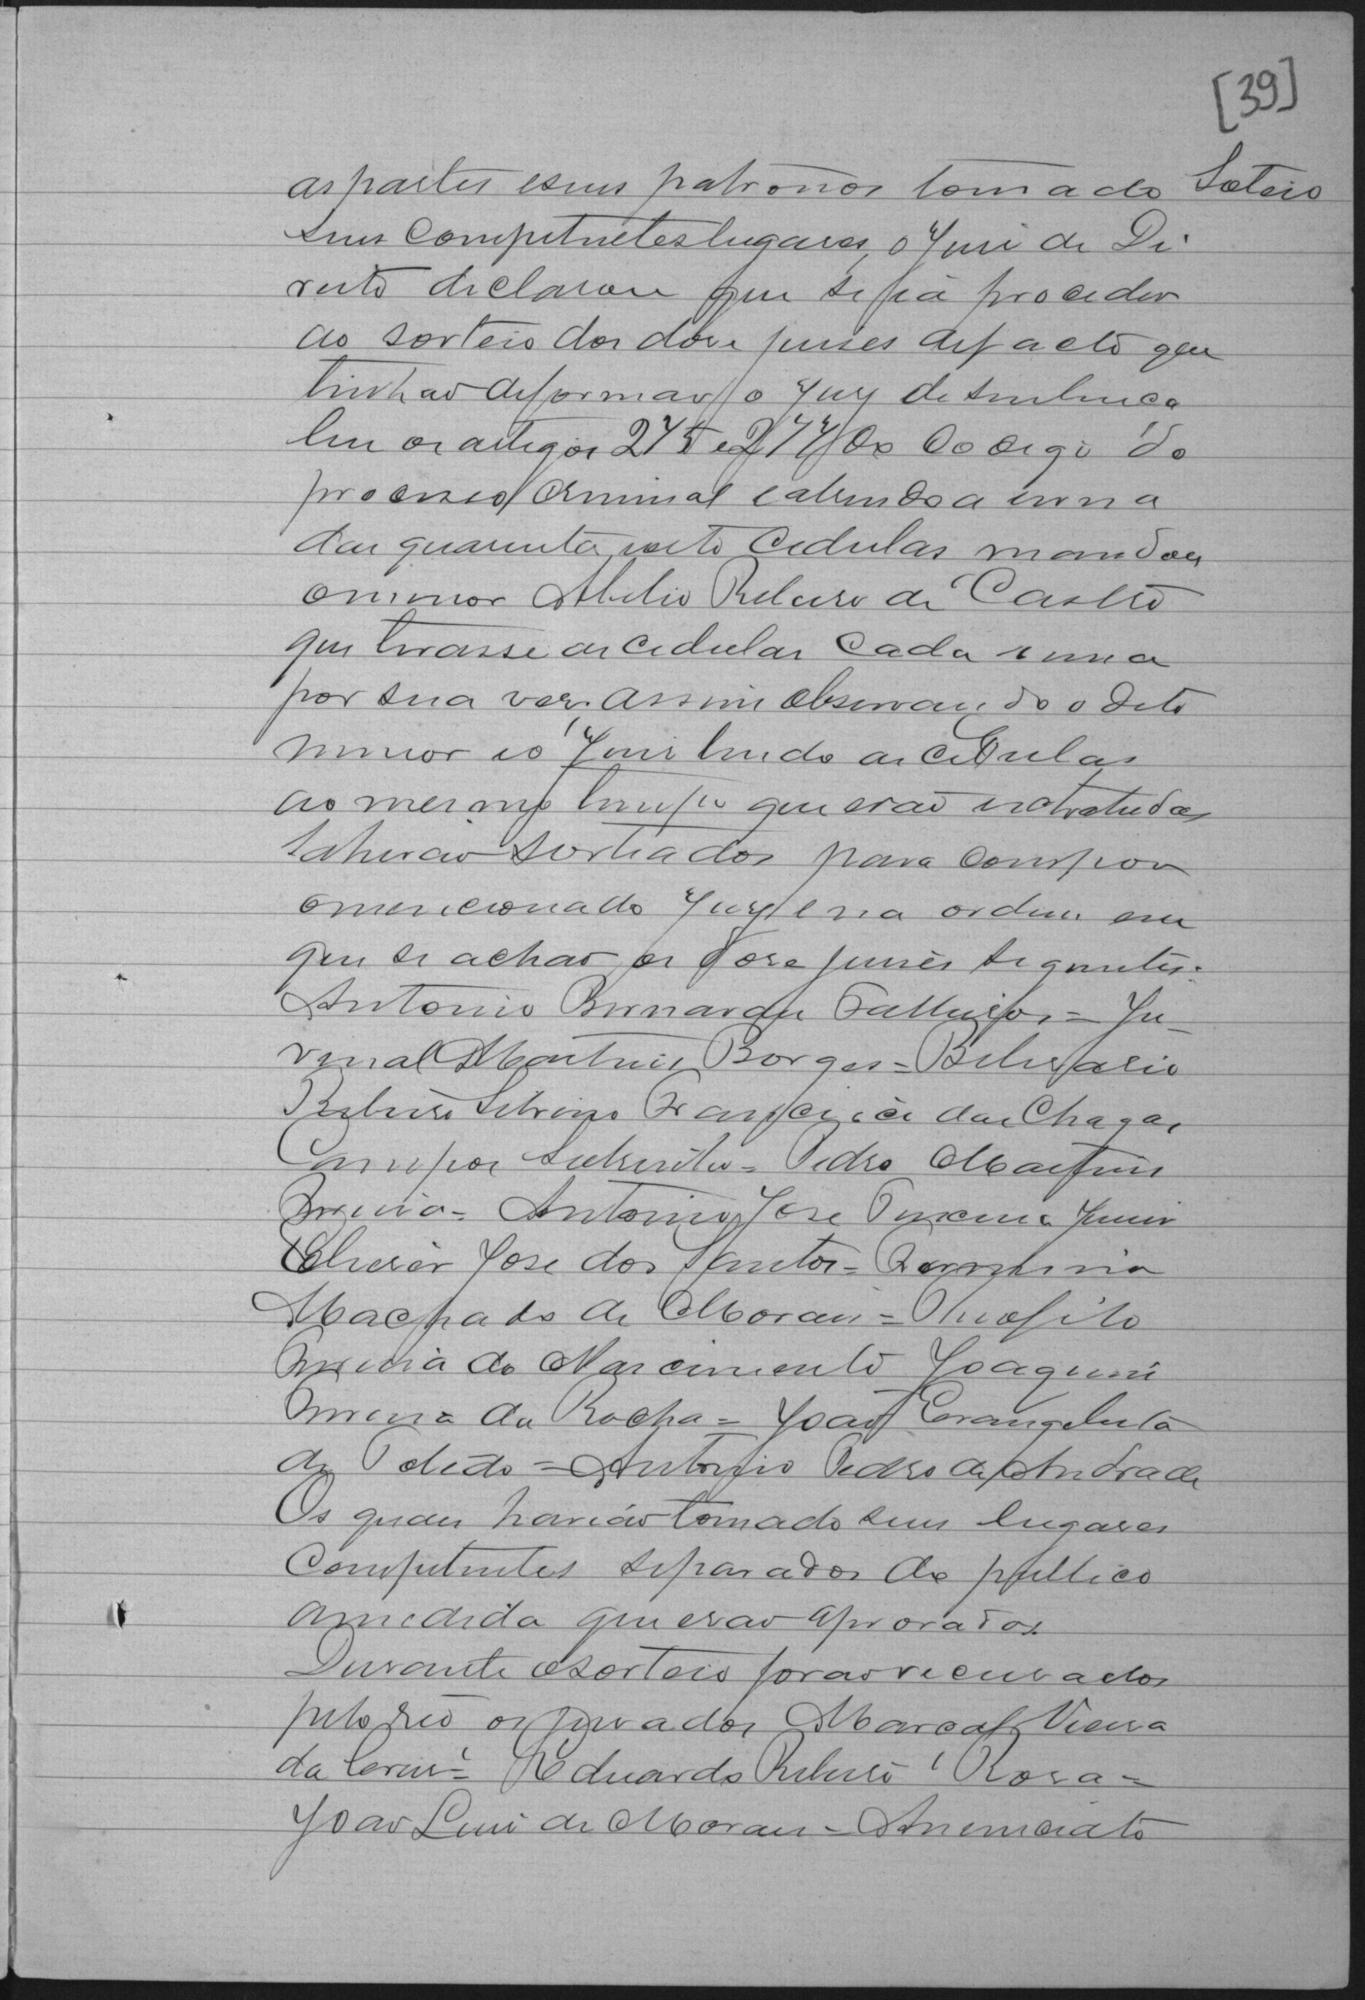 [39]
as partes e seus patronos tomado Soteio
seus competentes lugares, o Juiz de Di-
reito declarou que se hia proceder
ao sorteio dos dose juises de facto que
tinhao de formar o Jury de sentença
leu os artigos 275 e 277 do Codigo do
processo criminal e abrindo a urna
das quarenta e oito cedulas mandou
o menor Abilio Ribeiro de Castro
que tirasse as cedulas cada uma
por sua vez. assim observando o dito
menor e o Juiz lendo as cedulas
ao mesmo tempo que erao extrahidas
sahirao sortiados para compor
o mencionado Jury e na ordem em
que se achao os dose juises seguintes:
Antonio Bernardes = Ju-
venal Martins Borges = Belisario
Ribeiro Silvino Francisco das Chagas
Campos = Pedro Martins
= Antonio José
José dos Santos =
Machado de Morais = Theofilo
do Nascimento Joaquim
da Rocha = João Evangelista
de Toledo = Antonio Pedro de Andrade
Os quaes haviao tomado seus lugares
competentes separados do publico
a medida que erao aprovados.
Durante o sorteio forao recusados
pelo Reo os jurados Marcal Vieira
da = Eduardo Ribeiro Rosa =
Joao Luis de Moraes =